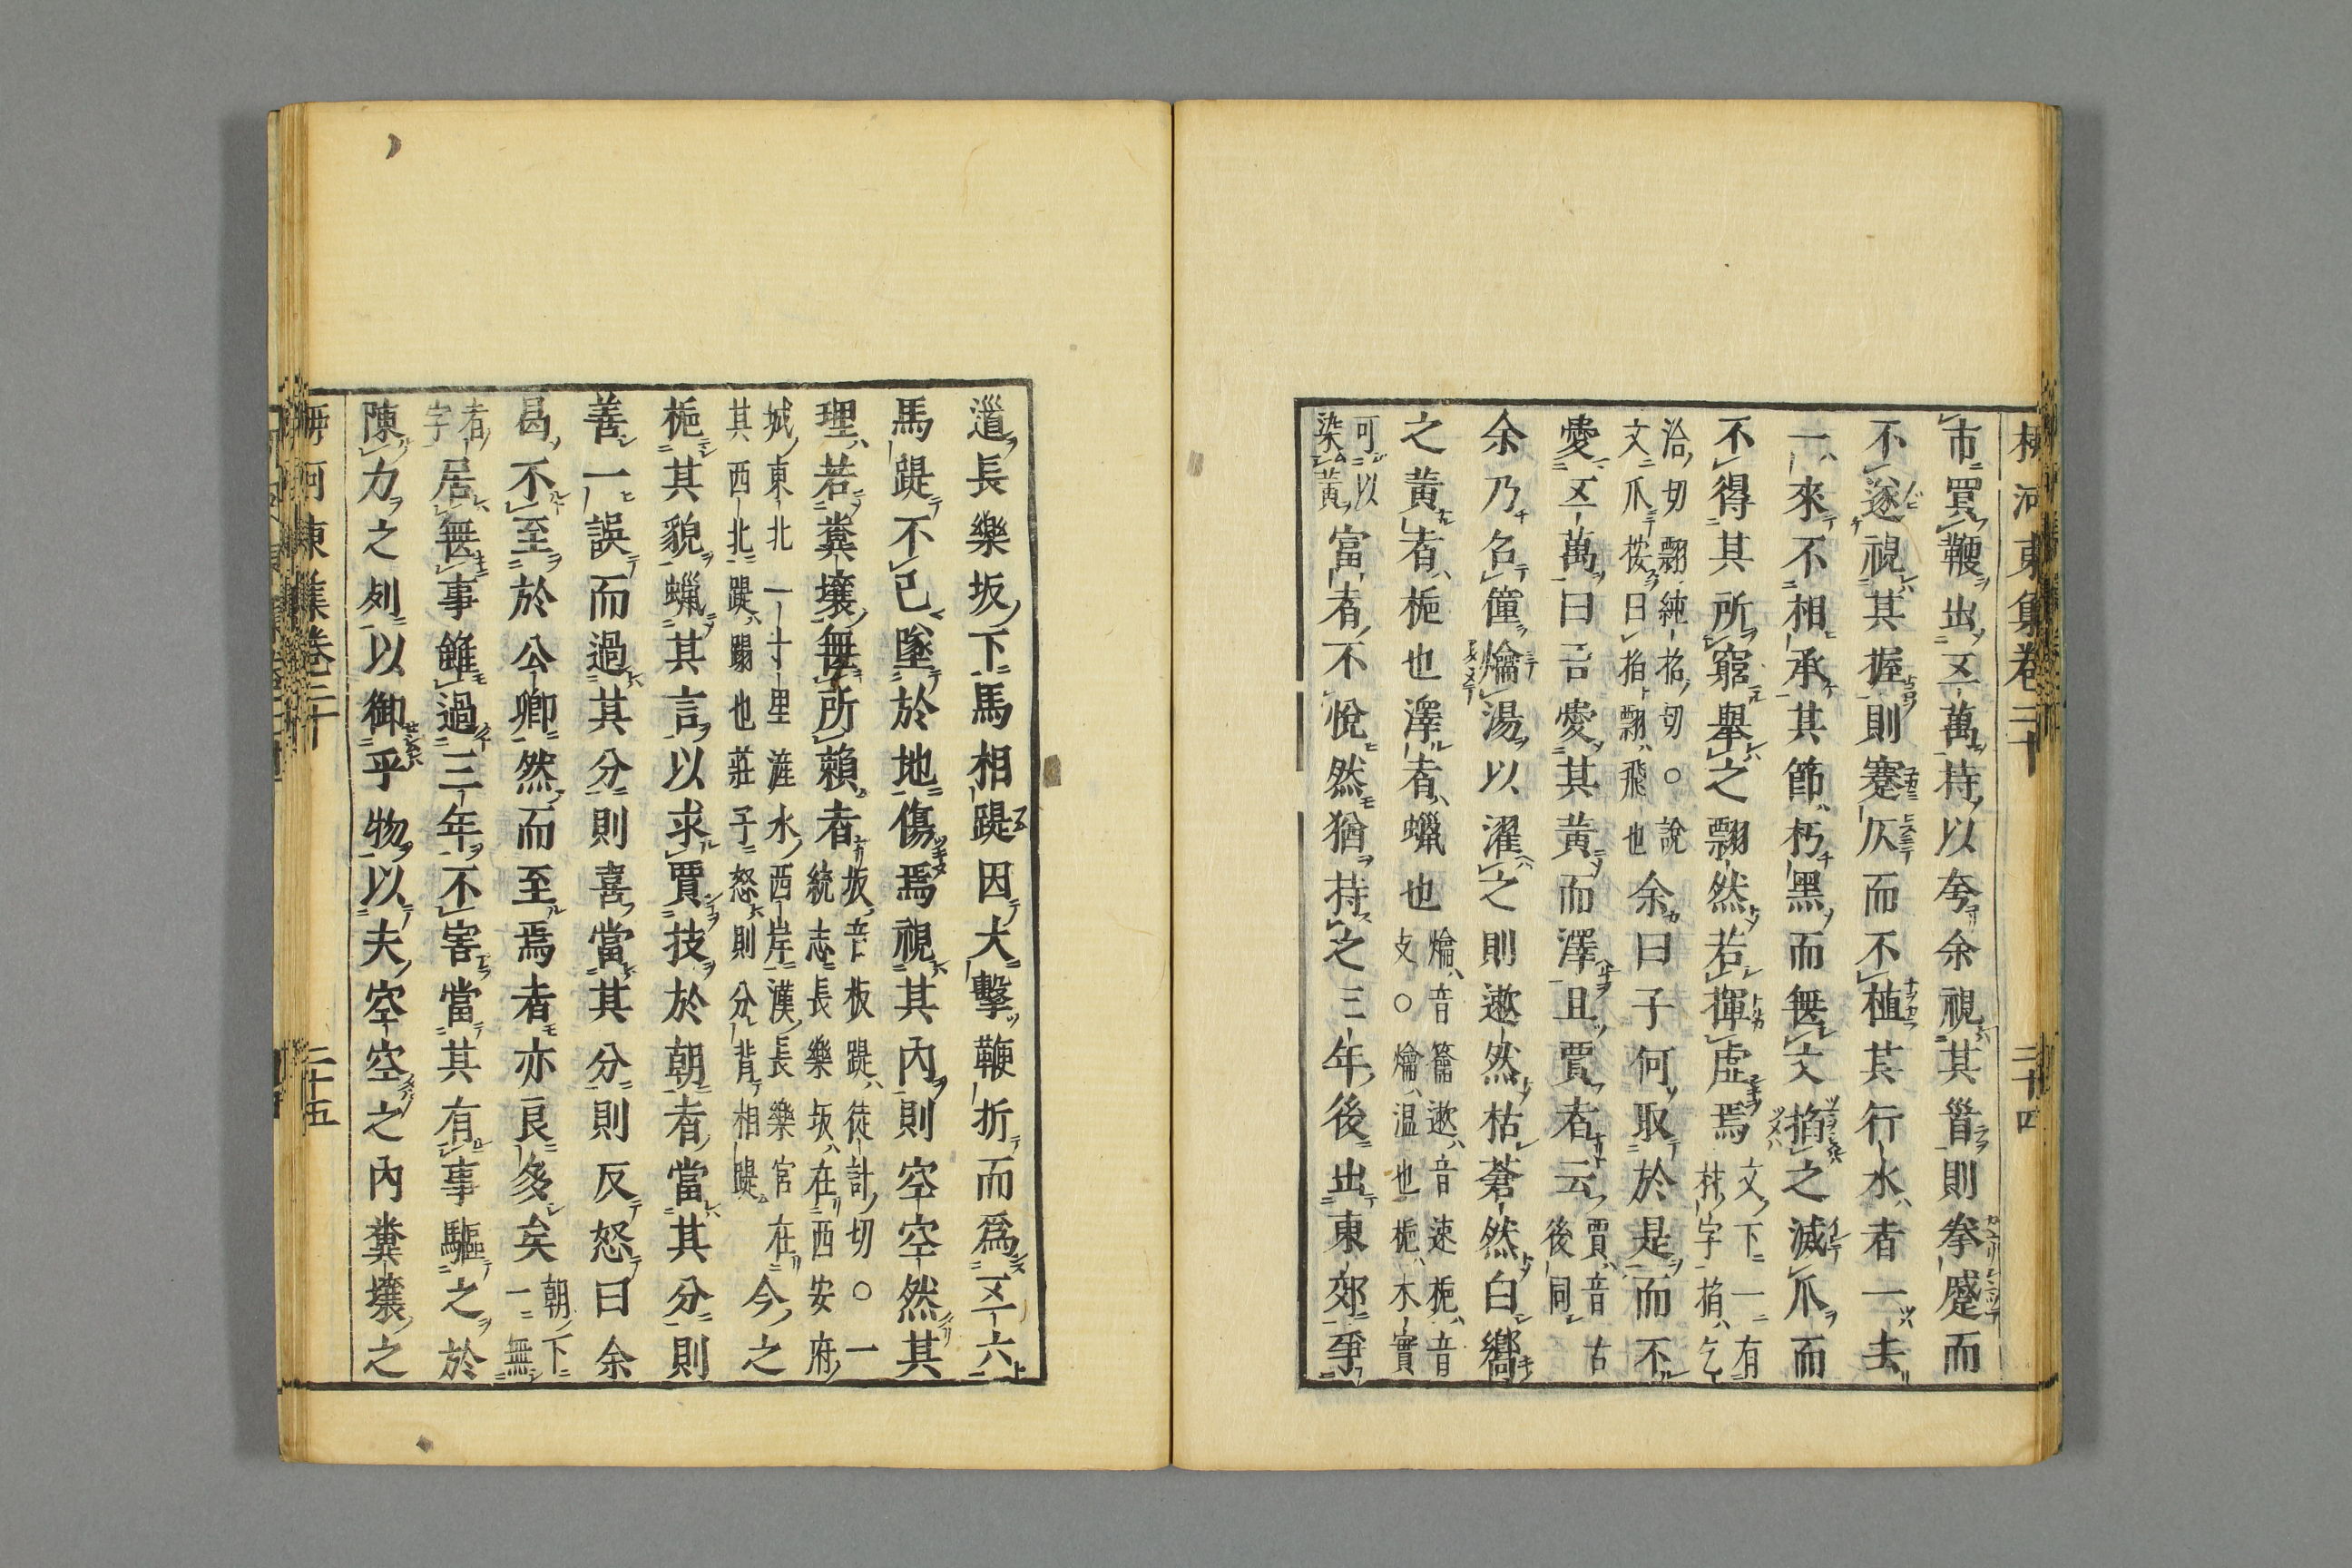 柳河東集卷二十　二十四
市買鞭出五萬持以夸余視其首則拳蹙而
不遂視其握則蹇仄而不植其行水者一去
一來不相承其節朽黑而無文掐之滅爪而
不得其所窮舉之翲然若揮虛焉文下一有
杖字掐乞
洽切翲純招切○說
文爪按曰掐翲飛也余曰子何取於是而不
愛五萬曰吾愛其黃而澤且賈者云賈音古
後同
余乃名僮爚湯以濯之則遬然枯蒼然白嚮
之黃者梔也澤者蠟也爚音籥遬音速梔音
支○爚温也梔木實
可以
染黃富者不悅然猶持之三年後出東郊爭
道長樂坂下馬相踶因大擊鞭折而爲五六
馬踶不已墜於地傷焉視其內則空空然其
理若糞壤無所賴者坂音板踶徒計切○一
統志長樂坂在西安府
城東北一十里滻水西岸漢長樂官在
其西北踶蹋也莊子怒則分背相踶今之
梔其貌蠟其言以求賈技於朝者當其分則
善一誤而過其分則喜當其分則反怒曰余
曷不至於公卿然而至焉者亦良多矣朝下
一無
者
字居無事雖過三年不害當其有事驅之於
陳力之列以御乎物以夫空空之內糞壤之
柳河東集卷二十　二十五